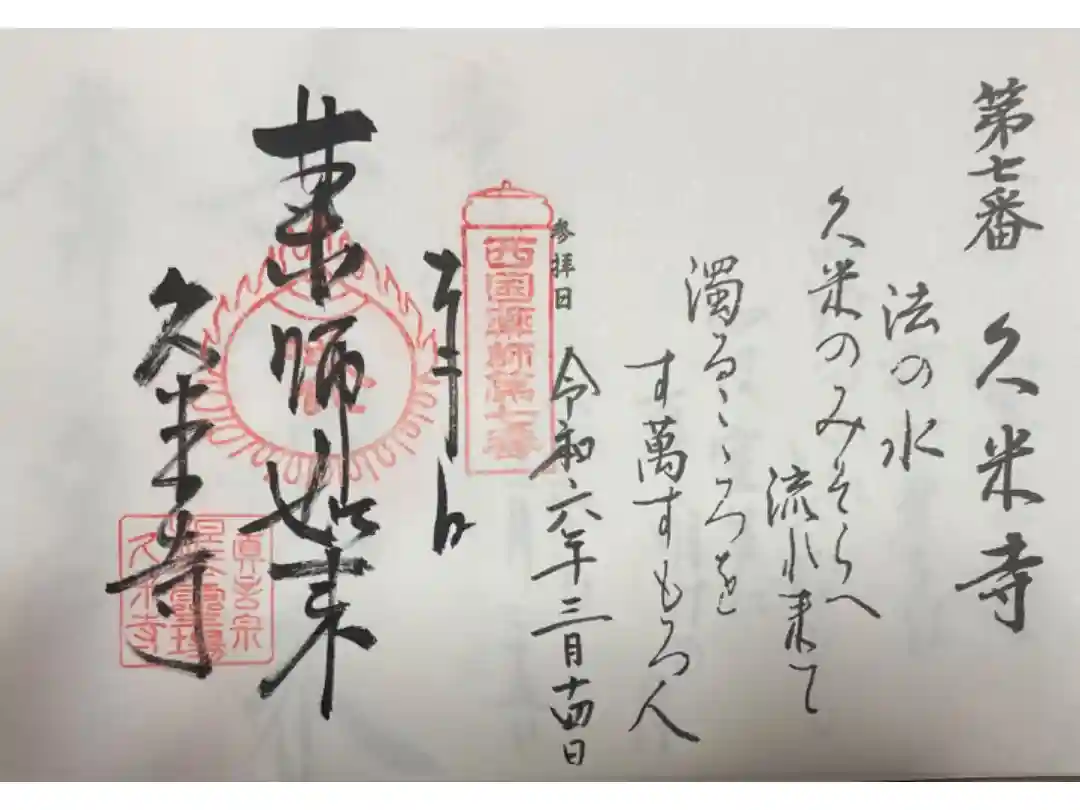 第七番 久米寺
法の水
久米のみそらへ
流れ来て
濁るこゝろを
すすすもろ人
参拝日 令和六年三月十四日
西国薬師第七番
奉拝
薬師如来
久米寺
真言宗
霊場
久米寺